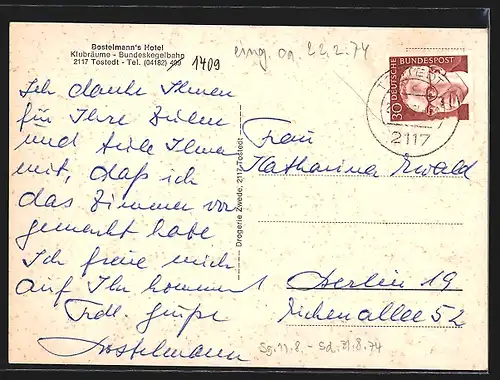 Bostelmann's Hotel
Klubräume - Bundeskegelbahn
2117 Tostedt - Tel. (04182) 499
1409
eing. 22.2.74
DEUTSCHE BUNDESPOST
30
2117
Ich danke Ihnen
für Ihre Zeilen
und teile Ihnen
mit, daß ich
das Zimmer vor
gemerkt habe
Ich freue mich
auf Ihr kommen
Frdl. Grüße
Bostelmann
Drogerie Zwede, 2117 Tostedt
Frau
Katharina Ewald
Berlin 19
Eichenallee 52
Sg. 11.8. - Sd. 31.8.74